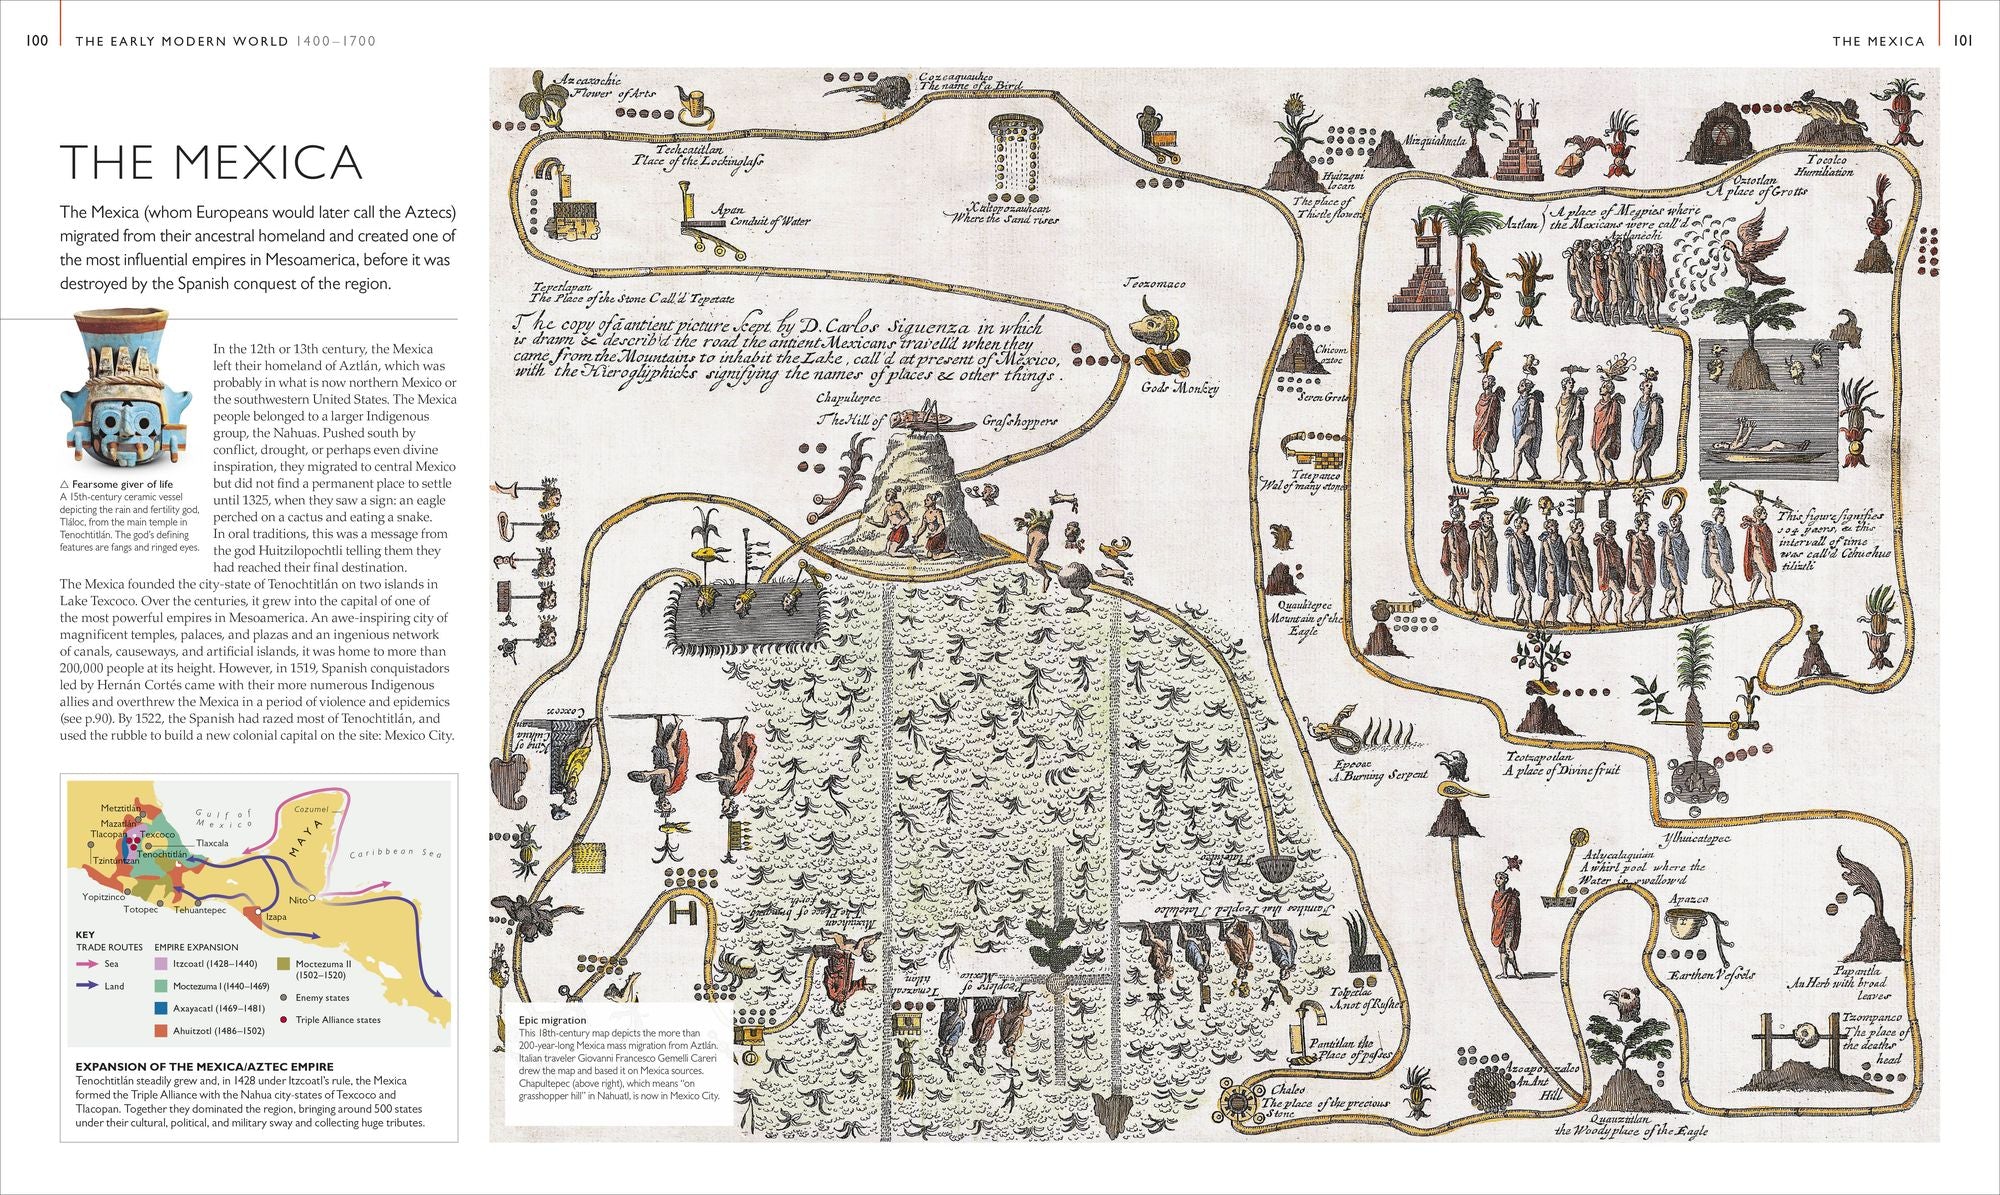 100
THE EARLY MODERN WORLD 1400–1700
THE MEXICA
101
THE MEXICA
The Mexica (whom Europeans would later call the Aztecs)
migrated from their ancestral homeland and created one of
the most influential empires in Mesoamerica, before it was
destroyed by the Spanish conquest of the region.
△ Fearsome giver of life
A 15th-century ceramic vessel
depicting the rain and fertility god,
Tláloc, from the main temple in
Tenochtitlán. The god's defining
features are fangs and ringed eyes.
In the 12th or 13th century, the Mexica
left their homeland of Aztlán, which was
probably in what is now northern Mexico or
the southwestern United States. The Mexica
people belonged to a larger Indigenous
group, the Nahuas. Pushed south by
conflict, drought, or perhaps even divine
inspiration, they migrated to central Mexico
but did not find a permanent place to settle
until 1325, when they saw a sign: an eagle
perched on a cactus and eating a snake.
In oral traditions, this was a message from
the god Huitzilopochtli telling them they
had reached their final destination.
The Mexica founded the city-state of Tenochtitlán on two islands in
Lake Texcoco. Over the centuries, it grew into the capital of one of
the most powerful empires in Mesoamerica. An awe-inspiring city of
magnificent temples, palaces, and plazas and an ingenious network
of canals, causeways, and artificial islands, it was home to more than
200,000 people at its height. However, in 1519, Spanish conquistadors
led by Hernán Cortés came with their more numerous Indigenous
allies and overthrew the Mexica in a period of violence and epidemics
(see p.90). By 1522, the Spanish had razed most of Tenochtitlán, and
used the rubble to build a new colonial capital on the site: Mexico City.
Metztitlán
Mazatlán
Tlacopan
Texcoco
Tlaxcala
Tenochtitlán
Tzintúntzan
Yopitzinco
Totopec
Tehuantepec
Izapa
Nito
Gulf of
Mexico
Cozumel
MAYA
Caribbean Sea
KEY
TRADE ROUTES
Sea
Land
EMPIRE EXPANSION
Itzcoatl (1428–1440)
Moctezuma I (1440–1469)
Axayacatl (1469–1481)
Ahuitzotl (1486–1502)
Moctezuma II
(1502–1520)
Enemy states
Triple Alliance states
EXPANSION OF THE MEXICA/AZTEC EMPIRE
Tenochtitlán steadily grew and, in 1428 under Itzcoatl's rule, the Mexica
formed the Triple Alliance with the Nahua city-states of Texcoco and
Tlacopan. Together they dominated the region, bringing around 500 states
under their cultural, political, and military sway and collecting huge tributes.
Azcaxochic
Flower of Arts
Cozcaquauhco
The name of a Bird
Techcatitlan
Place of the Lockinglass
Apan
Conduit of Water
Where the Sand rises
Huitzqui
locan
The place of
Thistle flowers
Mizquiahuala
Oztotlan
A place of Grotts
Tocolco
Humiliation
Aztlan
A place of Megpies where
the Mexicans were call'd
Aztlanechi
Tepetlapan
The Place of the Stone Call'd Tepetate
The copy of ã antient picture kept by D. Carlos Siguenza in which
is drawn & describ'd the road the antient Mexicans travell'd when they
came from the Mountains to inhabit the Lake, call'd at present of Mexico,
with the Hieroglyphicks signifying the names of places & other things.
Teozomaco
Gods Monkey
Chapultepec
The Hill of Grasshoppers
Chicom
oztoc
Seven Grots
Tetepanco
Wal of many stones
Quauhtepec
Mountain of the
Eagle
This figure signifies
104 years, & this
intervall of time
was call'd Cehuehue
tiliztli
Epcoac
A Burning Serpent
Teotzapotlan
A place of Divine fruit
Ylhuicatepec
Atlycalaquian
A whirl pool where the
Water is swallow'd
Apazco
Earthen Vessels
Papantla
An Herb with broad
leaves
Tzompanco
The place of
the deaths
head
Tolpetlac
A not of Rushes
Pantitlan the
Place of passes
Chalco
The place of the precious
Stone
Azcapotzalco
An Ant
Hill
Quauztitlan
the Woody place of the Eagle
Coxcox
King of
Families that Peopled Tlatelulco
Peoplers of
Mexico
Epic migration
This 18th-century map depicts the more than
200-year-long Mexica mass migration from Aztlán.
Italian traveler Giovanni Francesco Gemelli Careri
drew the map and based it on Mexica sources.
Chapultepec (above right), which means "on
grasshopper hill" in Nahuatl, is now in Mexico City.